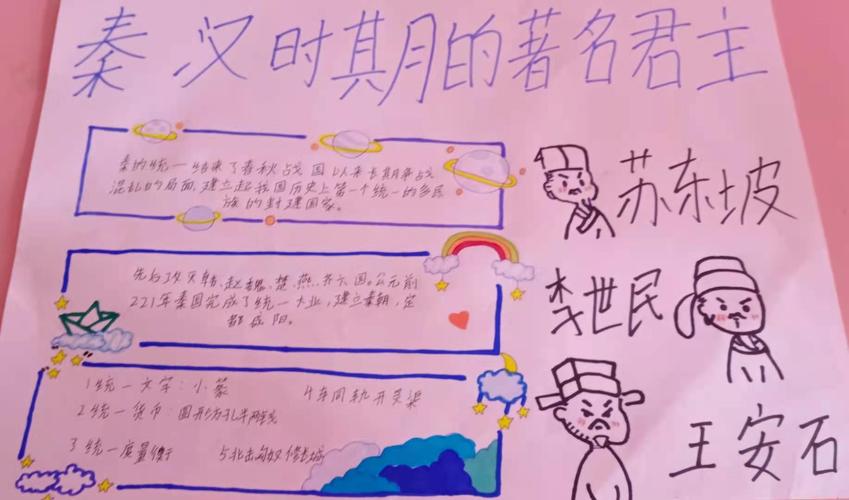 秦汉时其月的著名君主
秦的统一结束了春秋战国以来长期争战
混乱的局面,建立起我国历史上第一个统一的多民
族的封建国家。
苏东坡
先后攻灭韩、赵、魏、楚、燕、齐六国。公元前
221年秦国完成了统一大业,建立秦朝,定
都咸阳。
李世民
1统一文字:小篆
4车同轨开灵渠
2统一货币:圆形方孔半两钱
3统一度量衡
5北击匈奴修长城
王安石